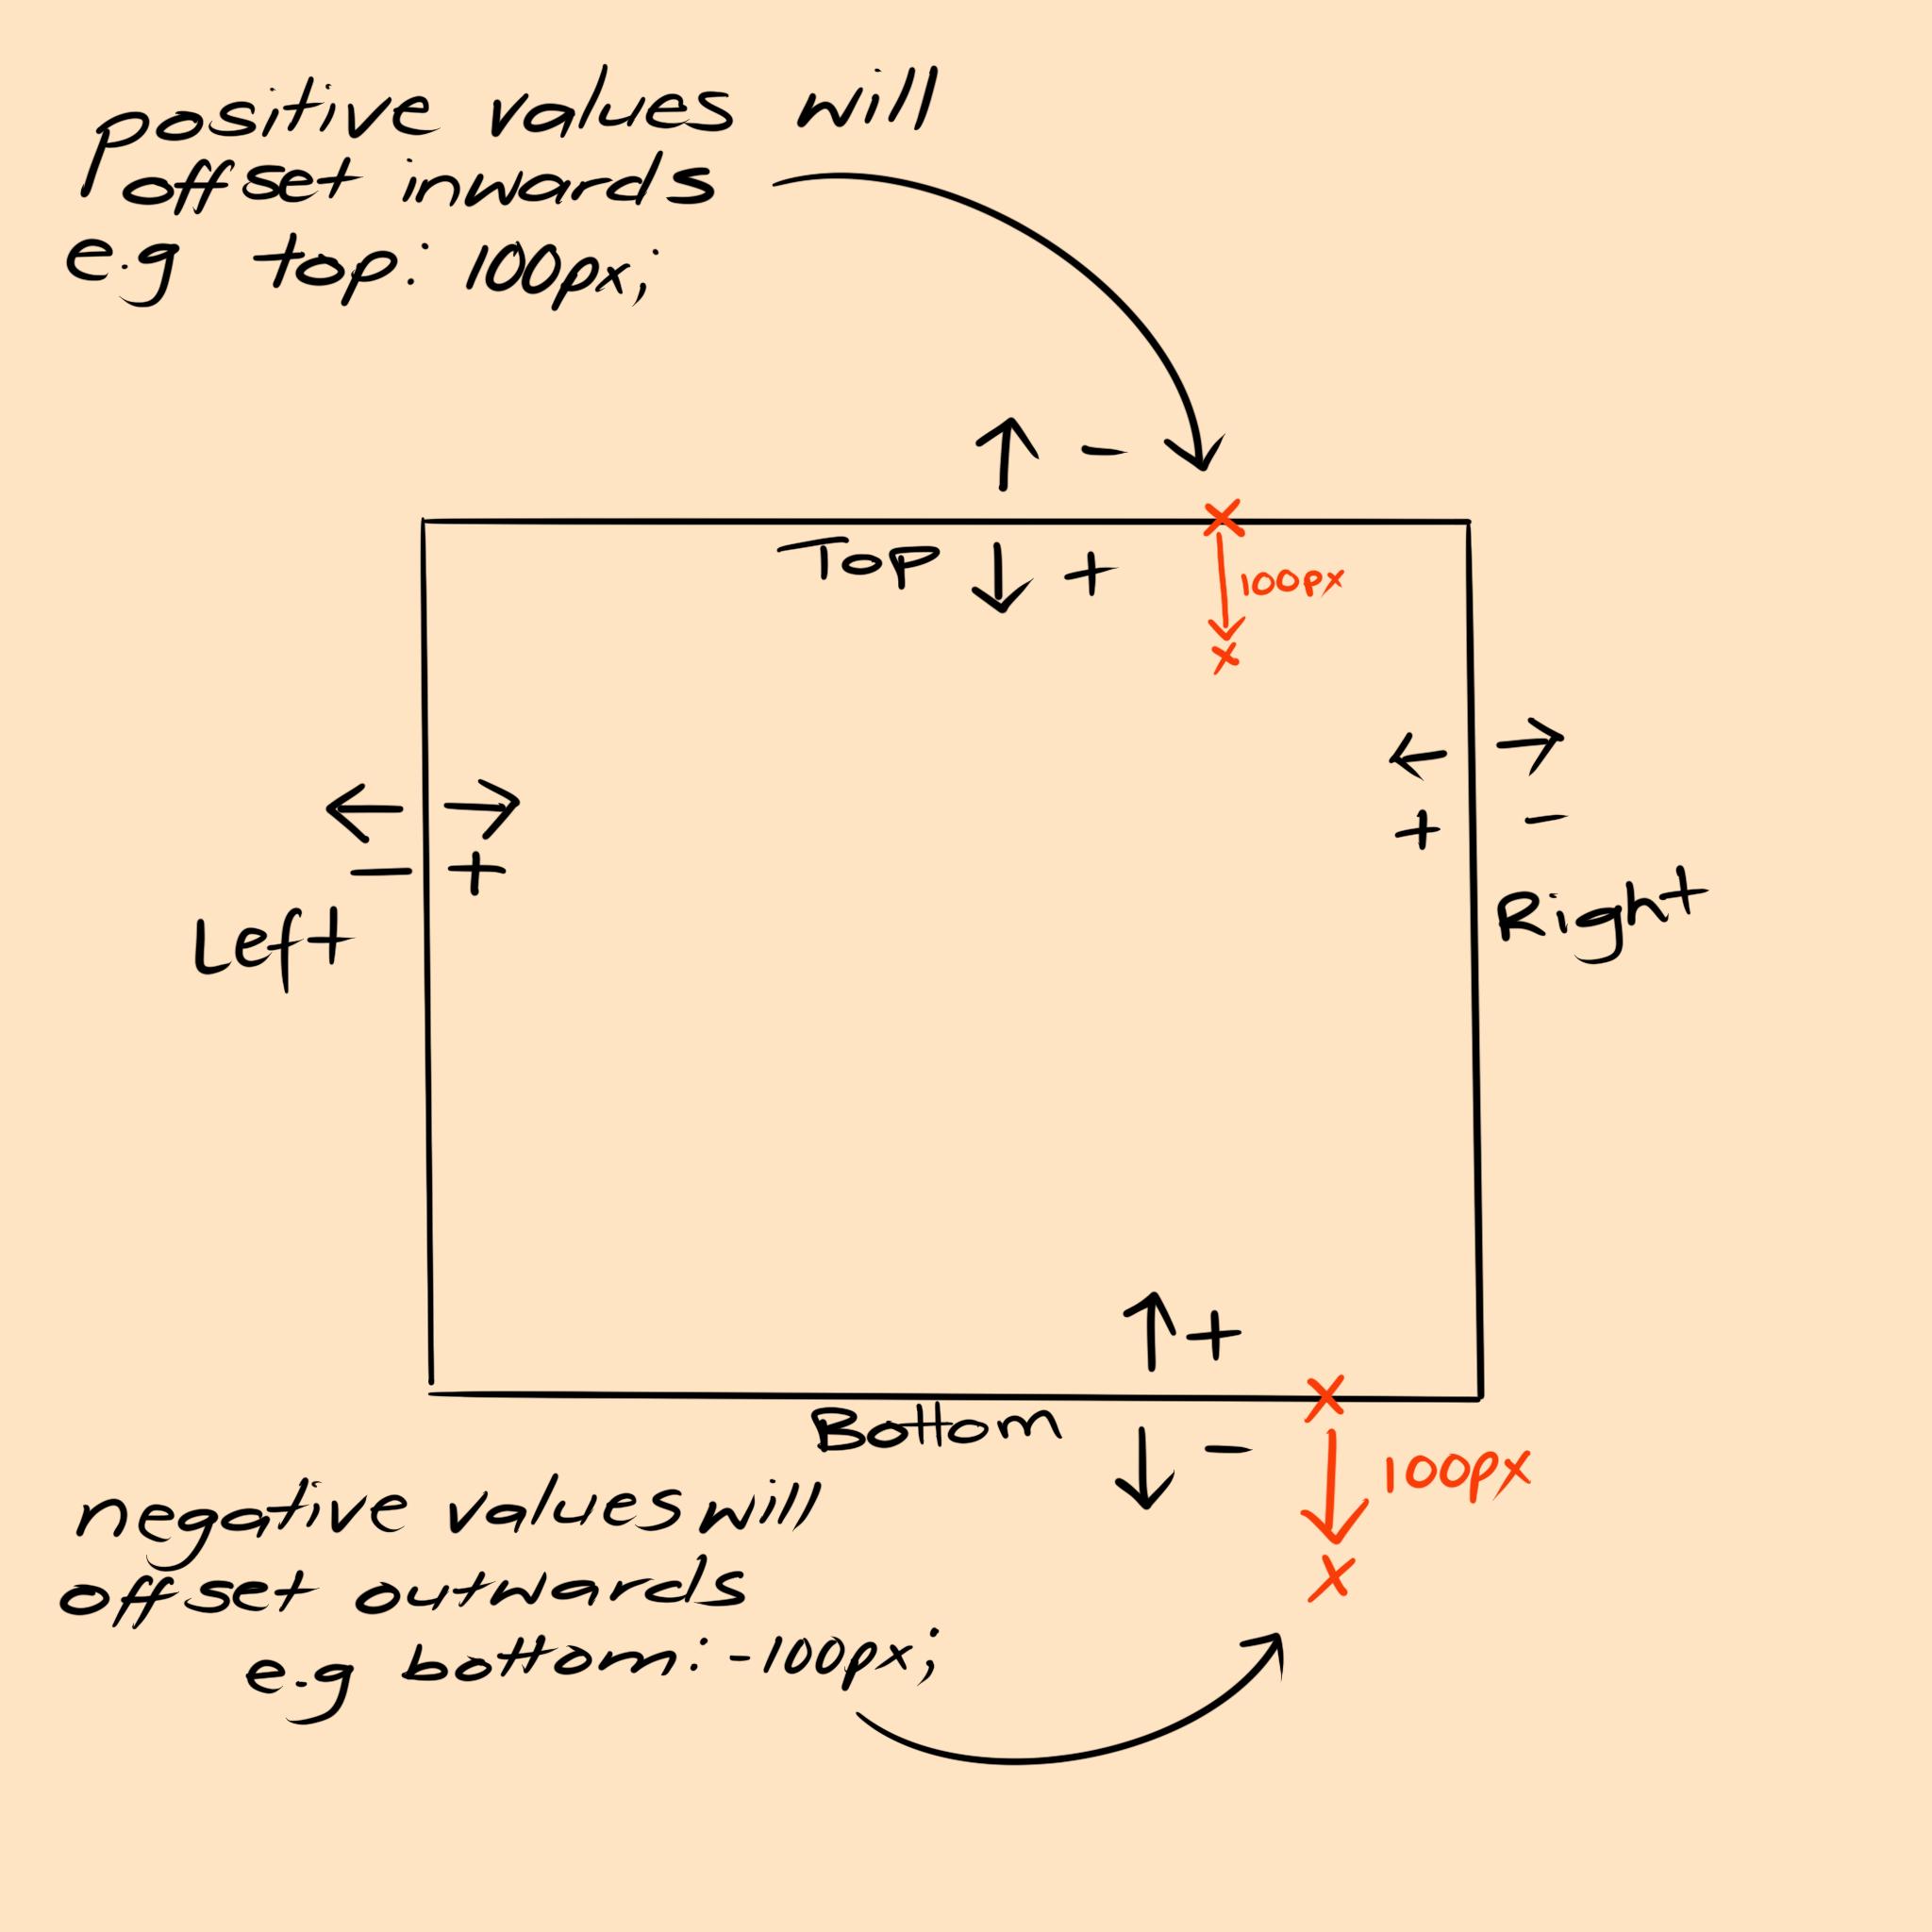 positive values will
offset inwards
e.g top: 100px;
↑ -
Top ↓ + 100px
← → ← →
- + + -
Left Right
↑ +
Bottom ↓ - 100px
negative values will
offset outwards
e.g bottom: -100px;